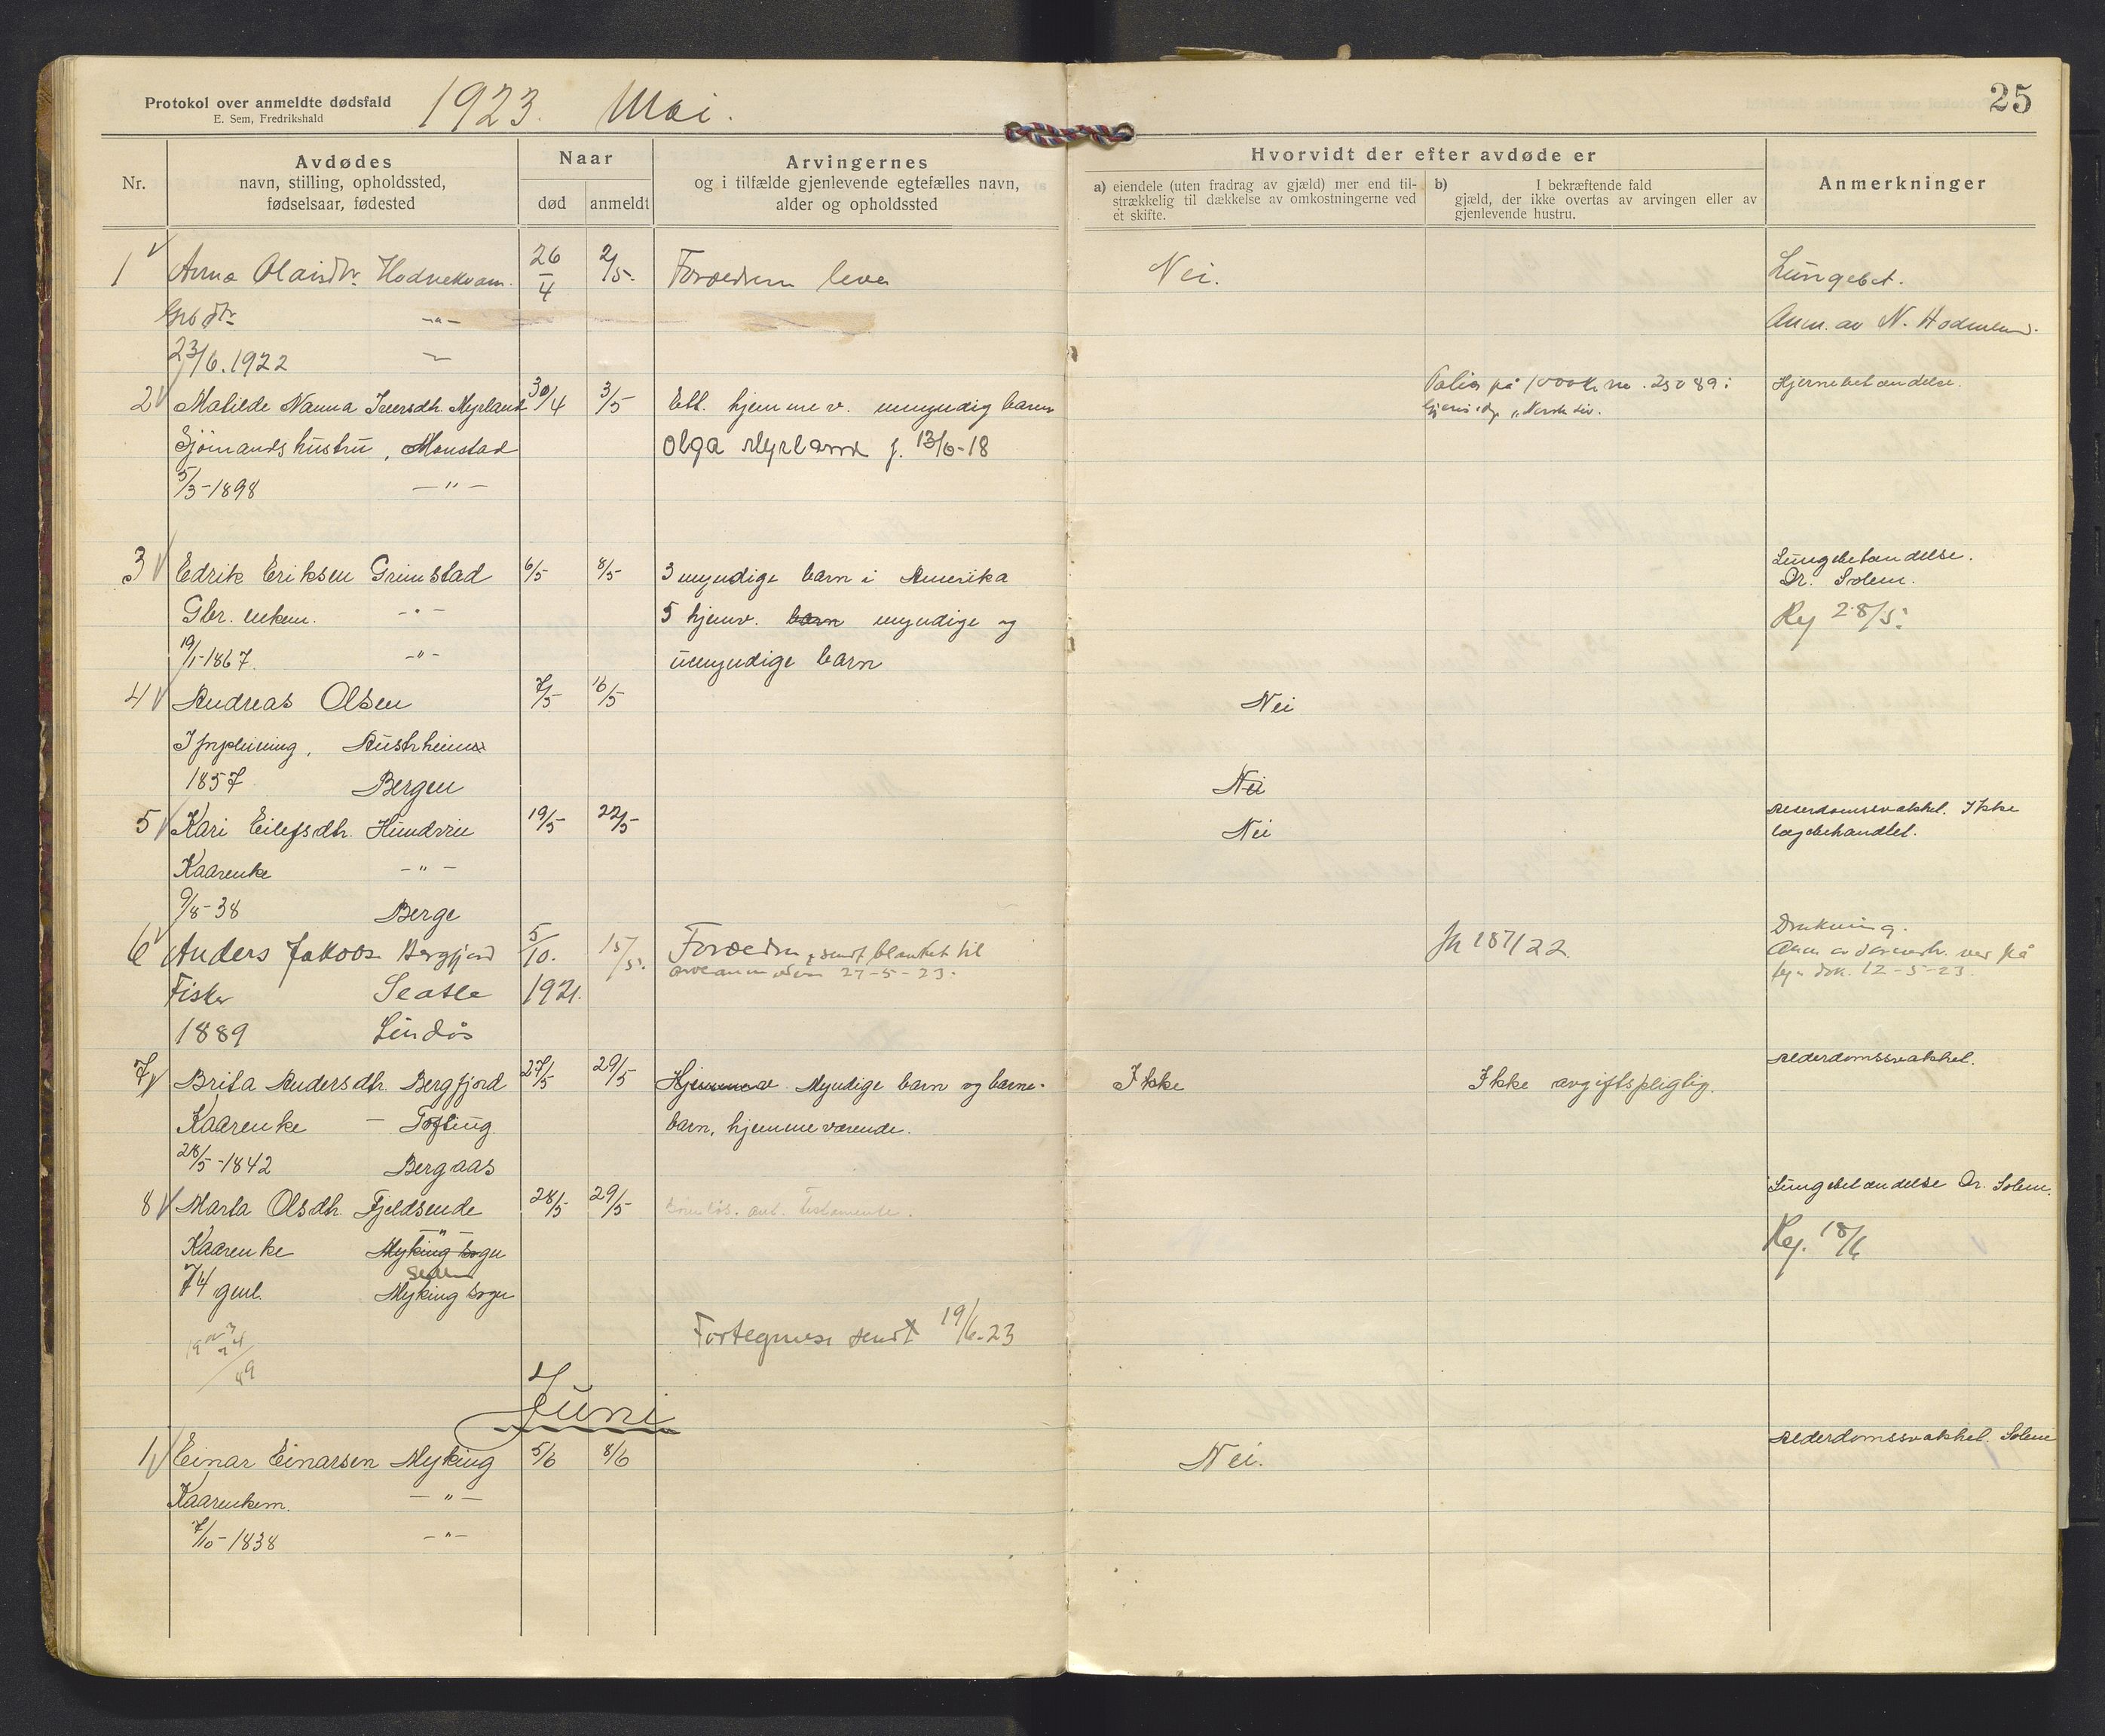 Protokol over anmeldte dødsfald
E. Sem, Fredrikshald
1923. Mai.
25
Nr.
Avdødes
navn, stilling, opholdssted,
fødselsaar, fødested
Naar
død
anmeldt
Arvingernes
og i tilfælde gjenlevende egtefælles navn,
alder og opholdssted
Hvorvidt der efter avdøde er
a) eiendele (uten fradrag av gjæld) mer end til-
strækkelig til dækkelse av omkostningerne ved
et skifte.
b) I bekræftende fald
gjæld, der ikke overtas av arvingen eller av
gjenlevende hustru.
Anmerkninger
1 Anna Olaisdtr. Hodnekvam. 26/4 2/5. Foræedrene lever Nei. Lungebet.
Gbr dtr -"- Anm. av N.
23/6.1922 -"-
2 Matilde Nanna Iversdtr. Myrland 30/4 3/5 Ett. hjemmev. umyndig barn Polise på 1000 kr no. 25089 i Hjernebetændelse.
Sjømands hustru, Monstad Olga Myrland f. 13/6-18
5/3-1898 -"-
3 Edrik Eriksen Grimstad 6/5 8/5 3 myndige barn i Amerika Lungebetændelse.
Dr. Solem.
Gbr. enkem. -"- 5 hjemv. barn myndige og Reg 28/5.
19/1-1867. -"- umyndige barn
4 Andreas Olsen 7/5 16/5 Nei
Austrheim
1857 Bergen Nei
5 Kari Eilefsdtr. Hundvin 19/5 22/5 Nei Alderdomssvakhet. Ikke
lægebehandlet.
Kaarenke -"-
9/8-38 Berge
6 Anders Jakobs Bergfjord 5/10. 15/5. Forældre, sendt blanket til Jn 187/22 Drukning.
27-5-23. 12-5-23.
Fisker Seatle 1921.
1889 Lindås
7 Brita Andersdtr. Bergfjord 27/5 29/5 Hjemmev Myndige barn og barne- Ikke Ikke avgiftspligtig. Alderdomssvakhet.
Kaarenke - Tofting. barn, hjemmeværende.
28/5-1842 Bergaas
8 Marta Olsdtr. Fjeldsende 28/5 29/5 Barnløs. ant. Testamente. Lungebetændelse Dr. Solem.
Kaarenke -"- Myking sogn Reg. 18/6
74 gml. Myking sogn
Fortegnelse sendt 19/6-23
Juni
1 Einar Einarsen Myking 5/6 8/6 Nei. Alderdomssvakhet. Solem
Kaarenkem. -"-
7/10-1838 -"-